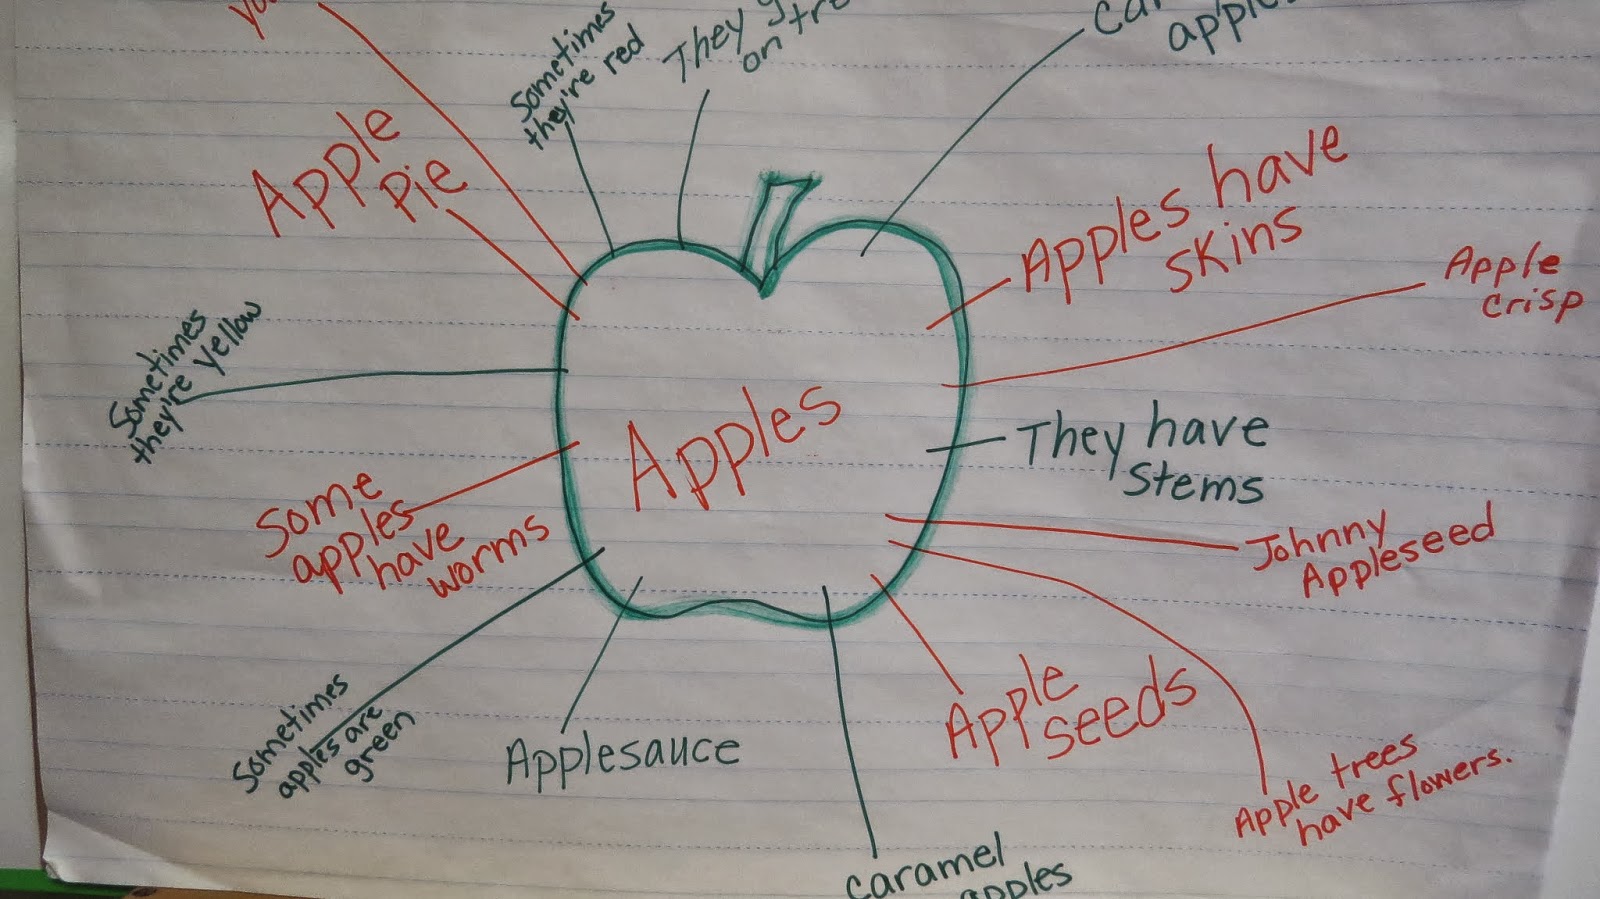 Sometimes
they're red
They
on
apples
Apple
Pie
Apples have
skins
Apple
crisp
Sometimes
they're yellow
Apples
They have
stems
Some
apples
have
worms
Johnny
Appleseed
Sometimes
apples are
green
Applesauce
Apple
seeds
Apple trees
have flowers.
caramel
apples